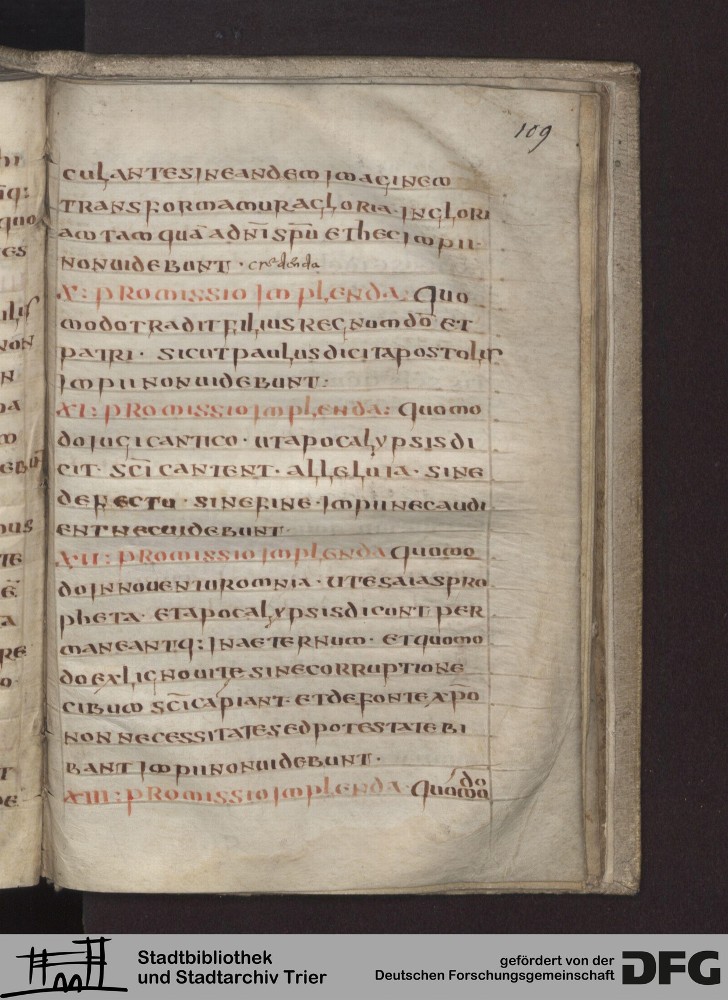 109
culantes in eandem imaginem
transformamur a gloria in glori
am tamqua̅ a dn̅i sp̅u et hec impii
non uidebunt · credenda
X: promissio implenda: Quo
modo tradit filius regnum do̅ et
patri · sicut paulus dicit apostolus
impii non uidebunt:
XI: promissio implenda: quomo
do iugi cantico · ut apocalypsis di
cit · sc̅i cantent · alleluia · sine
defectu · sine fine · impii nec audi
ent nec uidebunt ·
XII: promissio implenda quomo
do innouentur omnia · ut esaias pro
pheta · et apocalypsis dicunt per
maneantq: in aeternum · et quomo
do ex ligno uite sine corruptione
cibum sc̅i capiant · et de fonte xp̅o
non necessitate sed potestate bi
bant impii non uidebunt ·
XIII: promissio implenda · quomodo
Stadtbibliothek
und Stadtarchiv Trier
gefördert von der
Deutschen Forschungsgemeinschaft
DFG